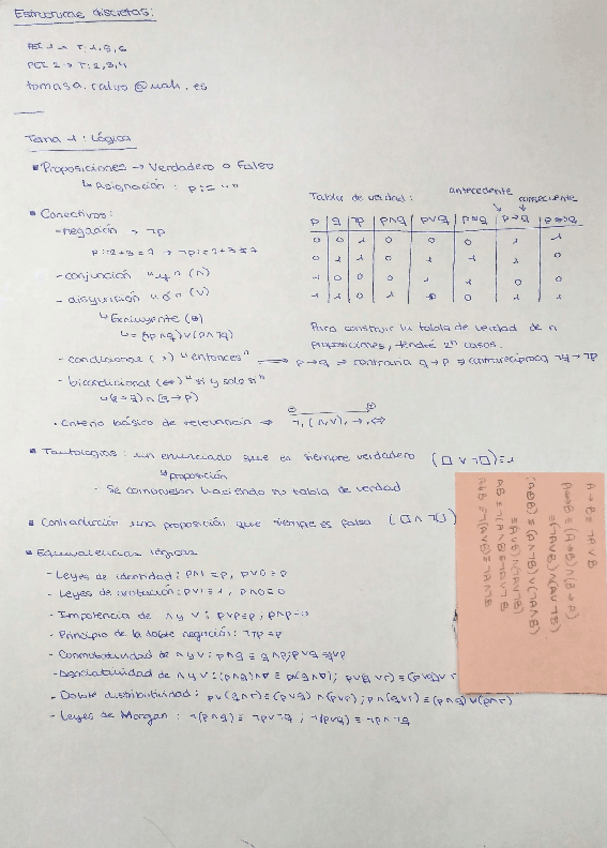 Estructuras discretas:
PEC 1 → T: 1,5,6
PEC 2 → T: 2,3,4
tomasa.calvo@uah.es
Tema 1: Lógica
Proposiciones → Verdadero o Falso
↳ Asignación : p := " "
Conectivos:
- negación → ¬p
- conjunción "y" (∧)
- disyunción "ó" (∨)
↳ Excluyente (⊕)
↳ = (¬p∧q)∨(p∧¬q)
- condicional (→) "entonces" → p→q ⇒ contraria q→p ⇒ contrarecíproca ¬q→¬p
- bicondicional (↔) "si y solo si"
↳ (p→q)∧(q→p)
· Criterio básico de relevancia ⇒ ¬, (∧,∨), →, ↔
Tabla de verdad: antecedente consecuente
p q ¬p p∧q p∨q p⊕q p→q p↔q
0 0 1 0 0 0 1 1
0 1 1 0 1 1 1 0
1 0 0 0 1 1 0 0
1 1 0 1 1 0 1 1
Para construir la tabla de verdad de n
proposiciones, tendré 2ⁿ casos.
Tautologías : un enunciado que es siempre verdadero (□ ∨ ¬□)≡1
↳ proposición
- Se comprueban haciendo su tabla de verdad
Contradicción : una proposición que siempre es falsa (□∧¬□)
Equivalencias lógicas
- Leyes de identidad : p∧1 ≡p, p∨0≡p
- Leyes de : p∨1≡1, p∧0≡0
- Impotencia de ∧ y ∨ : p∨p≡p; p∧p
- Principio de la doble negación: ¬¬p≡p
- Conmutatividad de ∧ y ∨: p∧q ≡ q∧p; p∨q ≡q∨p
- Asociatividad de ∧ y ∨: (p∧q)∧r ≡ p∧(q∧r); p∨(q∨r)≡(p∨q)∨r
- Doble distributividad: p∨(q∧r)≡(p∨q)∧(p∨r); p∧(q∨r)≡(p∧q)∨(p∧r)
- Leyes de Morgan : ¬(p∧q)≡ ¬p∨¬q ; ¬(p∨q)≡ ¬p∧¬q
A→B ≡ ¬A∨B
A↔B ≡ (A→B)∧(B→A)
≡(¬A∨B)∧(A∨¬B)
(A⊕B) ≡(A∧¬B)∨(¬A∧B)
≡(A∨B)∧(¬A∨¬B)